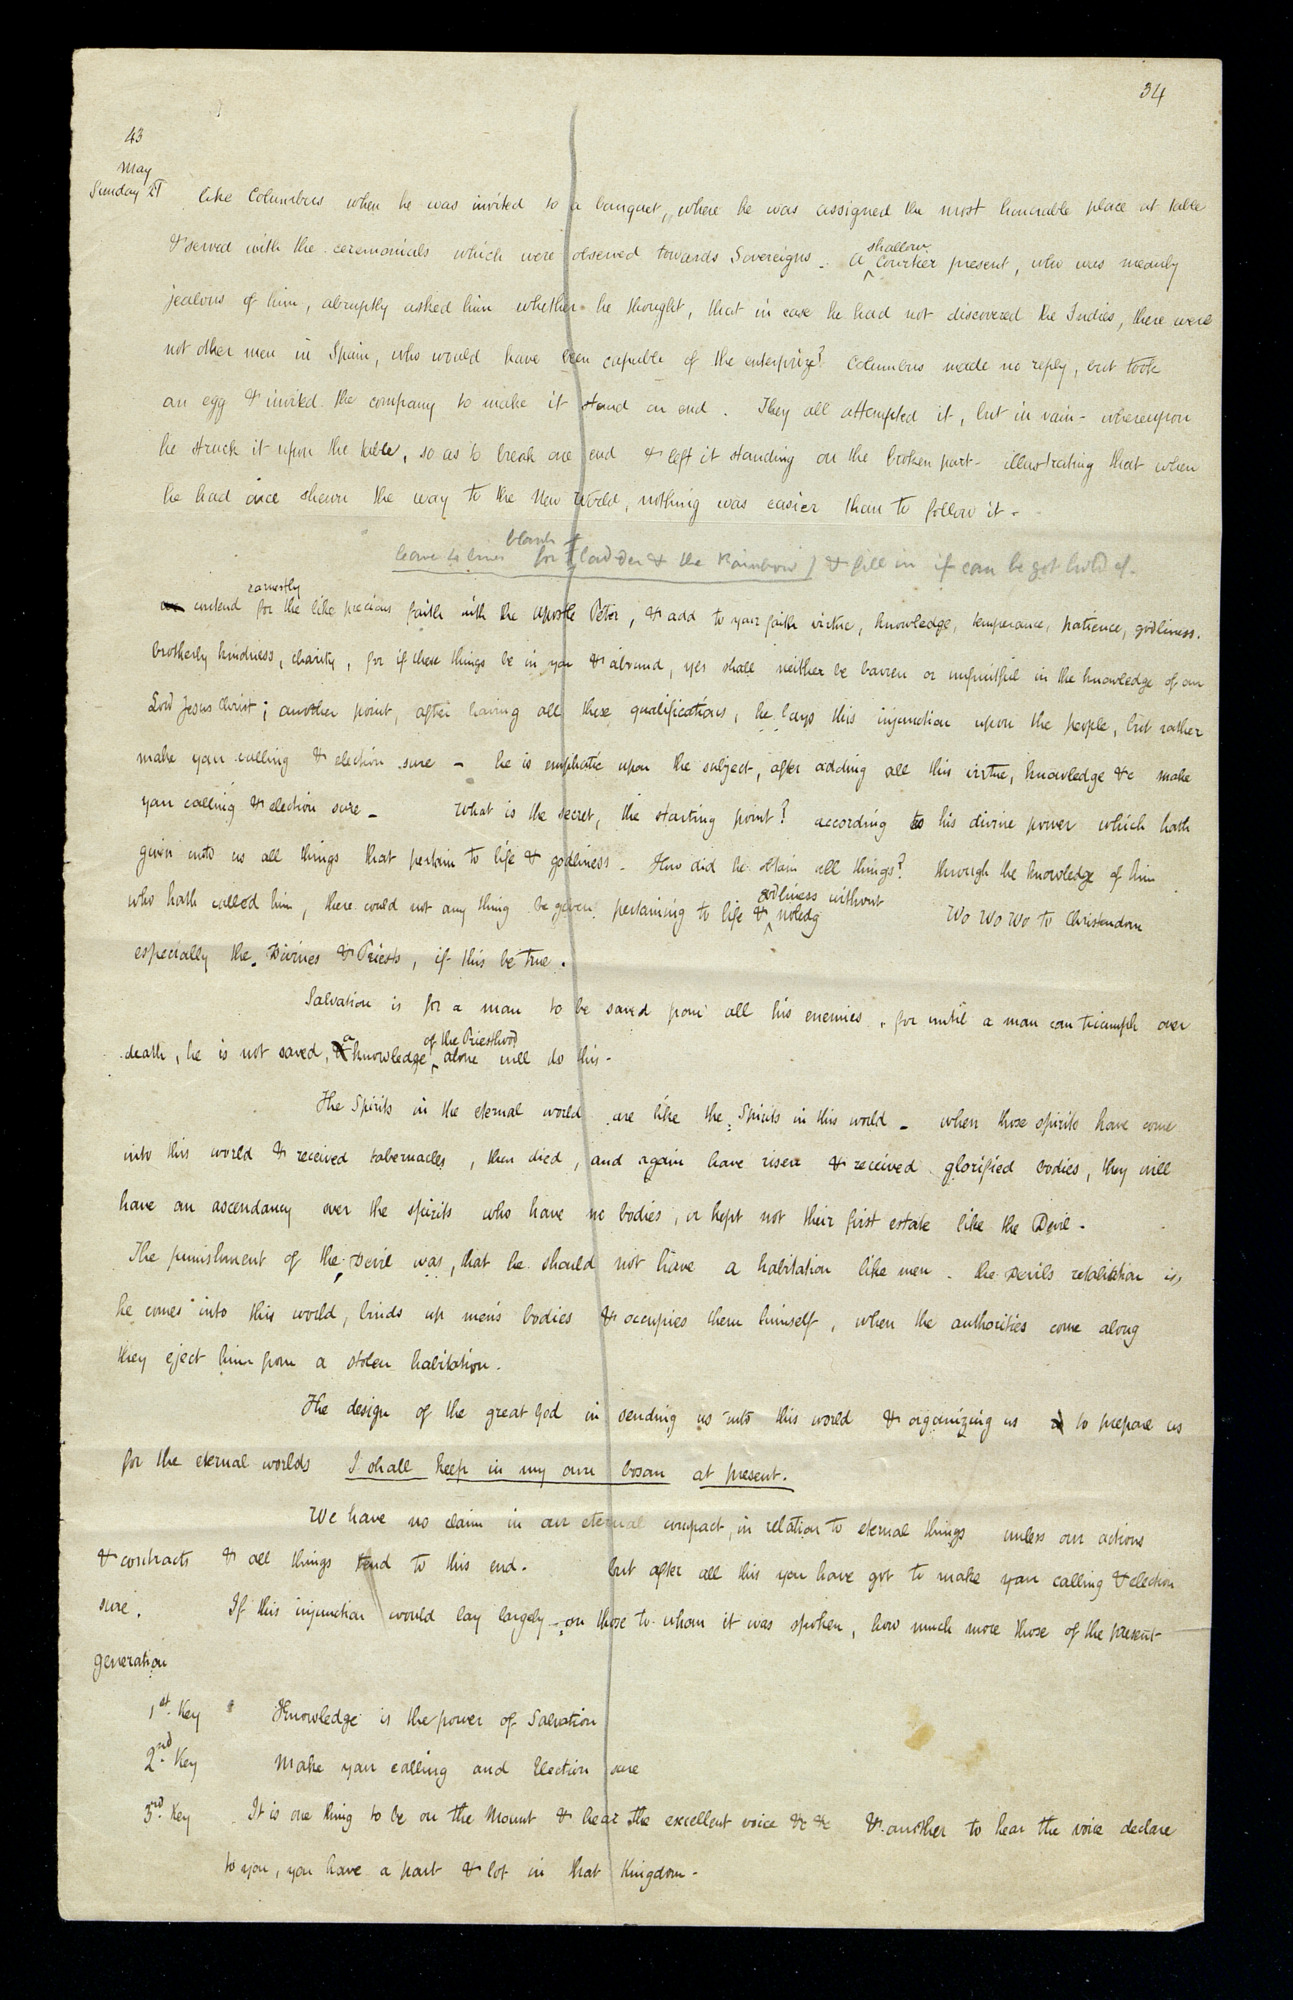 34
43
May
Sunday 21
like Columbus when he was invited to a banquet, where he was assigned the most honorable place at table
& served with the ceremonials which were observed towards Sovereigns. A shallow Courtier present, who was meanly
jealous of him, abruptly asked him whether he thought, that in case he had not discovered the Indies, there were
not other men in Spain, who would have been capable of the enterprize? Columbus made no reply, but took
an egg & invited the company to make it stand on end. They all attempted it, but in vain - whereupon
he struck it upon the table, so as to break one end & left it standing on the broken part - illustrating that when
he had once shewn the way to the New World, nothing was easier than to follow it -
leave lines blank for ladder & the Rainbow) & fill in if can be got hold of.
contend earnestly for the like precious faith with the Apostle Peter, & add to your faith virtue, knowledge, temperance, patience, godliness,
brotherly kindness, charity, for if these things be in you & abound, yes shall neither be barren or unfruitful in the knowledge of our
Lord Jesus Christ; another point, after having all these qualifications, he lays this injunction upon the people, but rather
make your calling & election sure - he is emphatic upon the subject, after adding all this virtue, knowledge &c make
your calling & election sure - What is the secret, the starting point? according to his divine power which hath
given unto us all things that pertain to life & godliness - How did he obtain all things? through the knowledge of him
who hath called him, there could not any thing be given, pertaining to life & godliness without noledg Wo Wo Wo to Christendom
especially the Divines & Priests, if this be true.
Salvation is for a man to be saved from all his enemies, for until a man can triumph over
death, he is not saved, a knowledge of the Priesthood alone will do this -
The Spirits in the eternal world are like the Spirits in this world - when those spirits have come
into this world & received tabernacles, then died, and again have risen & received glorified bodies, they will
have an ascendancy over the spirits who have no bodies, or kept not their first estate like the Devil -
The punishment of the Devil was, that he should not have a habitation like men - the Devils retaliation is,
he comes into this world, binds up men's bodies & occupies them himself, when the authorities come along
they eject him from a stolen habitation.
The design of the great God in sending us into this world & organizing us to prepare us
for the eternal worlds I shall keep in my own bosom at present.
We have no claim in our eternal compact, in relation to eternal things unless our actions
& contracts & all things tend to this end. but after all this you have got to make your calling & election
sure. If this injunction would lay largely on those to whom it was spoken, how much more those of the present
generation
1st. Key Knowledge is the power of Salvation
2nd. Key Make your calling and Election sure
3rd. Key It is one thing to be on the Mount & hear the excellent voice &c &c & another to hear the voice declare
to you, you have a part & lot in that Kingdom -